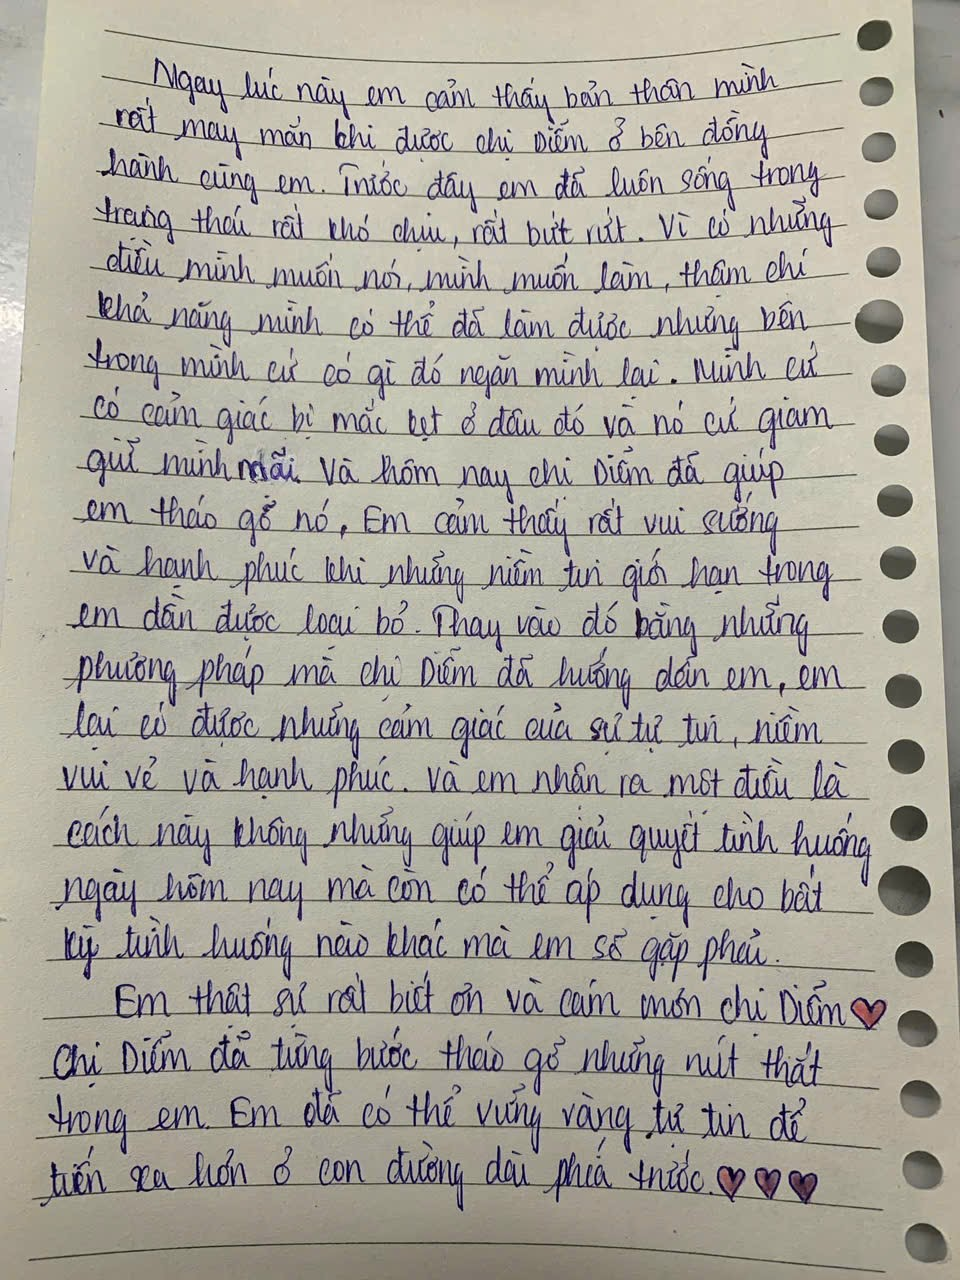 Ngay lúc này em cảm thấy bản thân mình
rất may mắn khi được chị Diễm ở bên đồng
hành cùng em. Trước đây em đã luôn sống trong
trạng thái rất khó chịu, rất bứt rứt. Vì có những
điều mình muốn nói, mình muốn làm, thậm chí
khả năng mình có thể đã làm được nhưng bên
trong mình cứ có gì đó ngăn mình lại. Mình cứ
có cảm giác bị mắc kẹt ở đâu đó và nó cứ giam
giữ mình mãi. Và hôm nay chị Diễm đã giúp
em tháo gỡ nó, Em cảm thấy rất vui sướng
và hạnh phúc khi những niềm tin giới hạn trong
em dần được loại bỏ. Thay vào đó bằng những
phương pháp mà chị Diễm đã hướng dẫn em, em
lại có được những cảm giác của sự tự tin, niềm
vui vẻ và hạnh phúc. Và em nhận ra một điều là
cách này không những giúp em giải quyết tình huống
ngày hôm nay mà còn có thể áp dụng cho bất
kỳ tình huống nào khác mà em sẽ gặp phải.
Em thật sự rất biết ơn và cám mơn chị Diễm ♥
Chị Diễm đã từng bước tháo gỡ những nút thắt
trong em. Em đã có thể vững vàng tự tin để
tiến xa hơn ở con đường dài phía trước. ♥ ♥ ♥